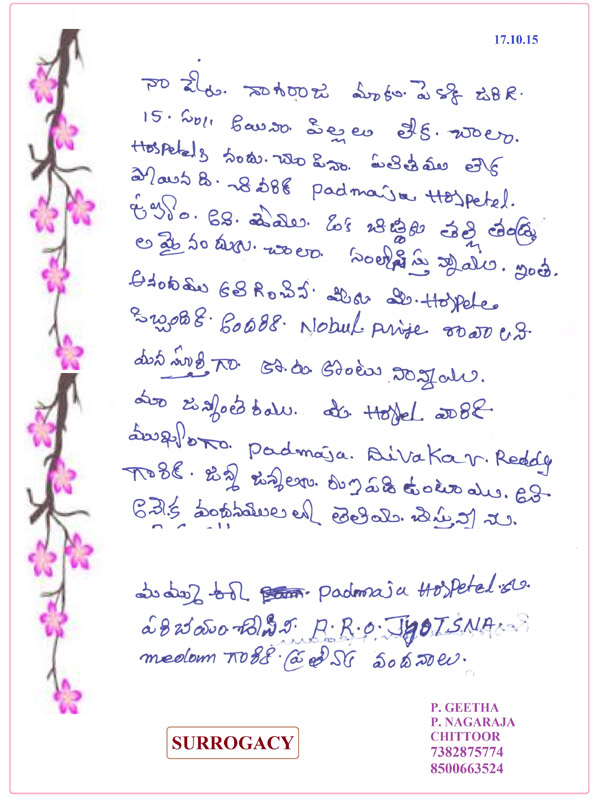 17.10.15
నా పేరు. నాగరాజ మాకు. పెళ్లి జరిగి.
15. సం॥ అయినా. పిల్లలు లేక. చాలా.
Hospetelకి
పోయినది. చివరికి Padmaja Hospetel.
ఒక బిడ్డకు తల్లి తండ్రి
చాలా. ఇంత.
ఆనందము కలిగించిన. మీకు మీ. Hospetel
సిబ్బందికి. అందరికి. Nobul Prize రావాలని
మనస్పూర్తిగా. కోరు కొంటు న్నాము.
మా జన్మంతరము. మీ Hospel వారికి
ముఖ్యంగా. Padmaja. DivaKar. Reddy
గారికి. జన్మ జన్మలకు. రుణపడి ఉంటాము. అని
అనేక వందనములతో తెలియ. చేస్తున్నాను.
మమ్ము Padmaja Hospetel. కు.
పరిచయం చేసిన. A.R.O. JYOTSNA.
medom గారికి. ప్రత్యేక వందనాలు.
P. GEETHA
P. NAGARAJA
CHITTOOR
7382875774
8500663524
SURROGACY